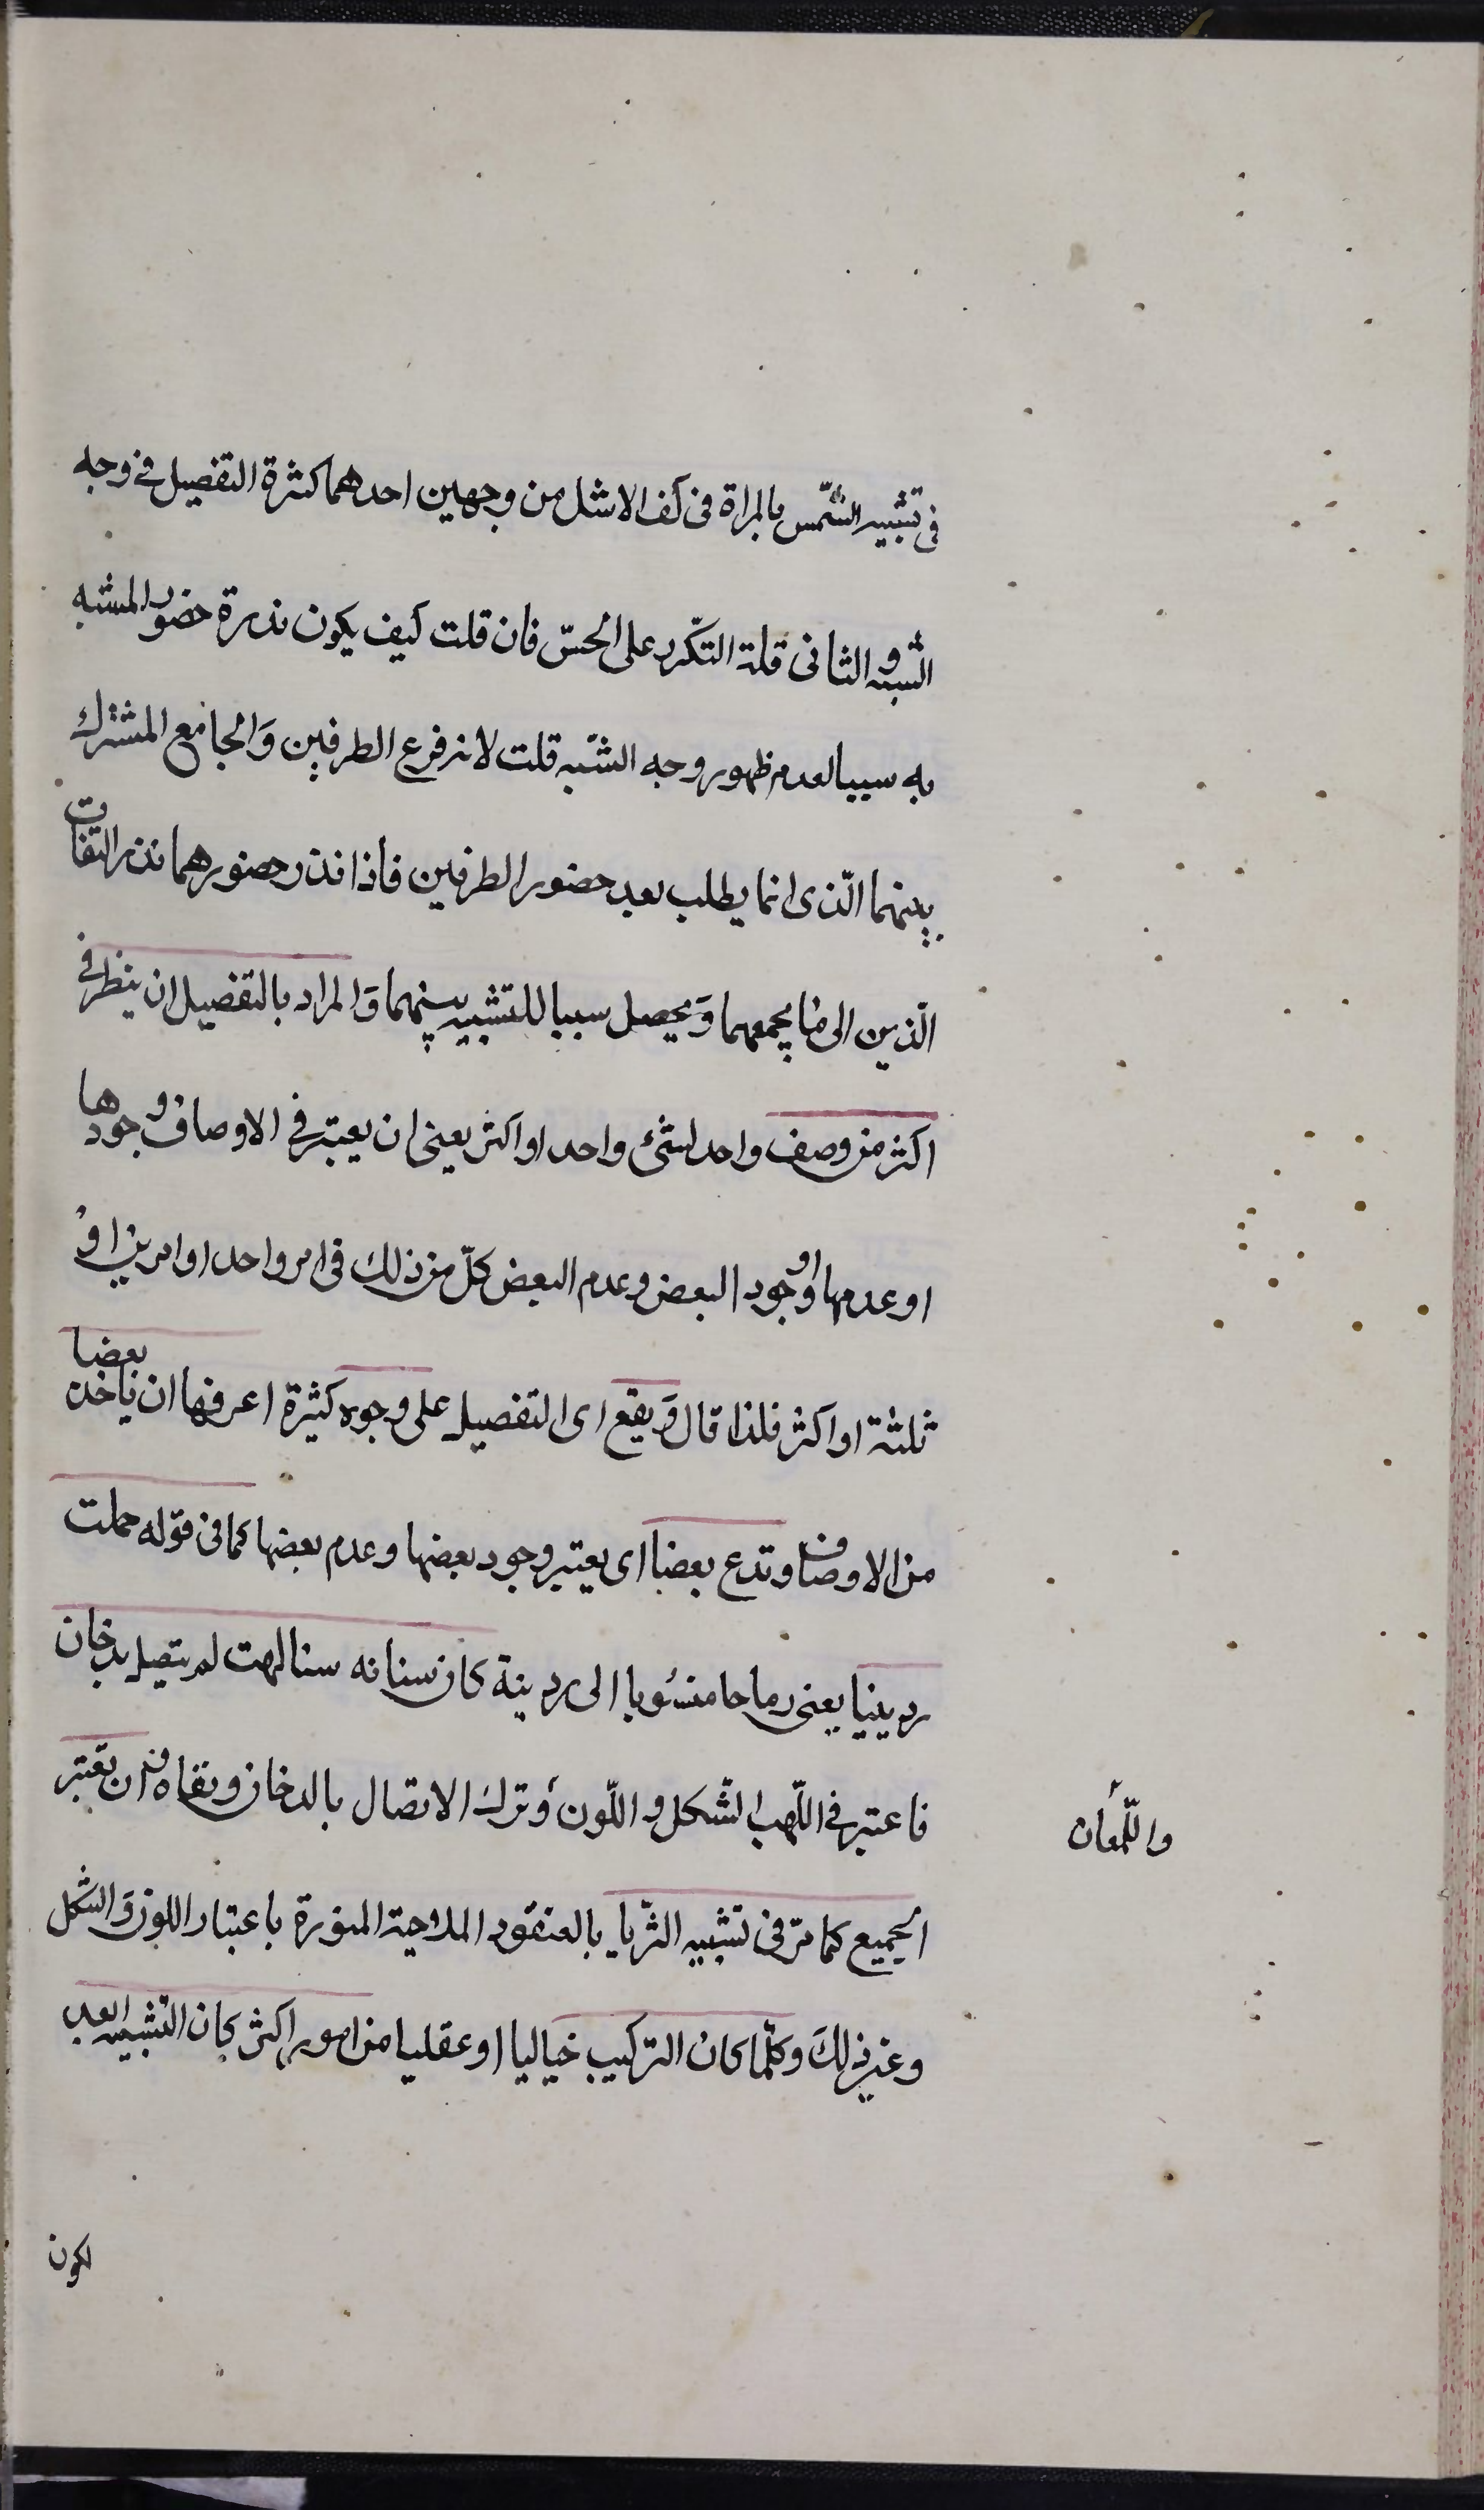 فى تشبيه الشّمس بالمراة فى كف الاشل من وجهين احدهما كثرة التفصيل فى وجه
الشبه والثانى قلة التكرر على الحسّ فان قلت كيف يكون ندرة حضور المشبه
به سببا لعدم ظهور وجه الشّبه قلت لانه فرع الطرفين وَالجامع المشترك
بينهما الّذى انما يطلب بعد حضور الطرفين فاذا ندر حضورهما ندر التفات
الذهن الى ما يجمعهما وَيحصل سببا للتشبيه بينهما وَالمراد بالتفضيل ان ينظر فى
اكثر من وصف واحد لشئ واحد او اكثر يعنى ان يعتبر فى الاوصاف وجودها
او عدمها او وجود البعض وعدم البعض كلّ من ذلك فى امر واحد او امرين اوْ
ثلثة او اكثر فلذا قال وَيقع اى التفصيل على وجوه كثيرة اعرفها ان ياخذ بعضا
من الاوصاف وتدع بعضا اى يعتبر وجود بعضها وعدم بعضها كما فى قوله حملت
ردينيا يعنى رماحا منسوبا الى ردينة كان سنانه سنا لهب لم يتصل بدخان
فاعتبر فى اللّهب الشّكل و اللّون وَترك الاتصال بالدخان ونفاه وان تعتبر
والّلمعان
الجميع كما مرّ فى تشبيه الثّريا بالعنقود الملاحية المنورة باعتبار اللون وَالشكل
وغير ذلكَ وكلّما كان التركيب خياليا او عقليا من امور اكثر كان التشبيه ابعد
لكون